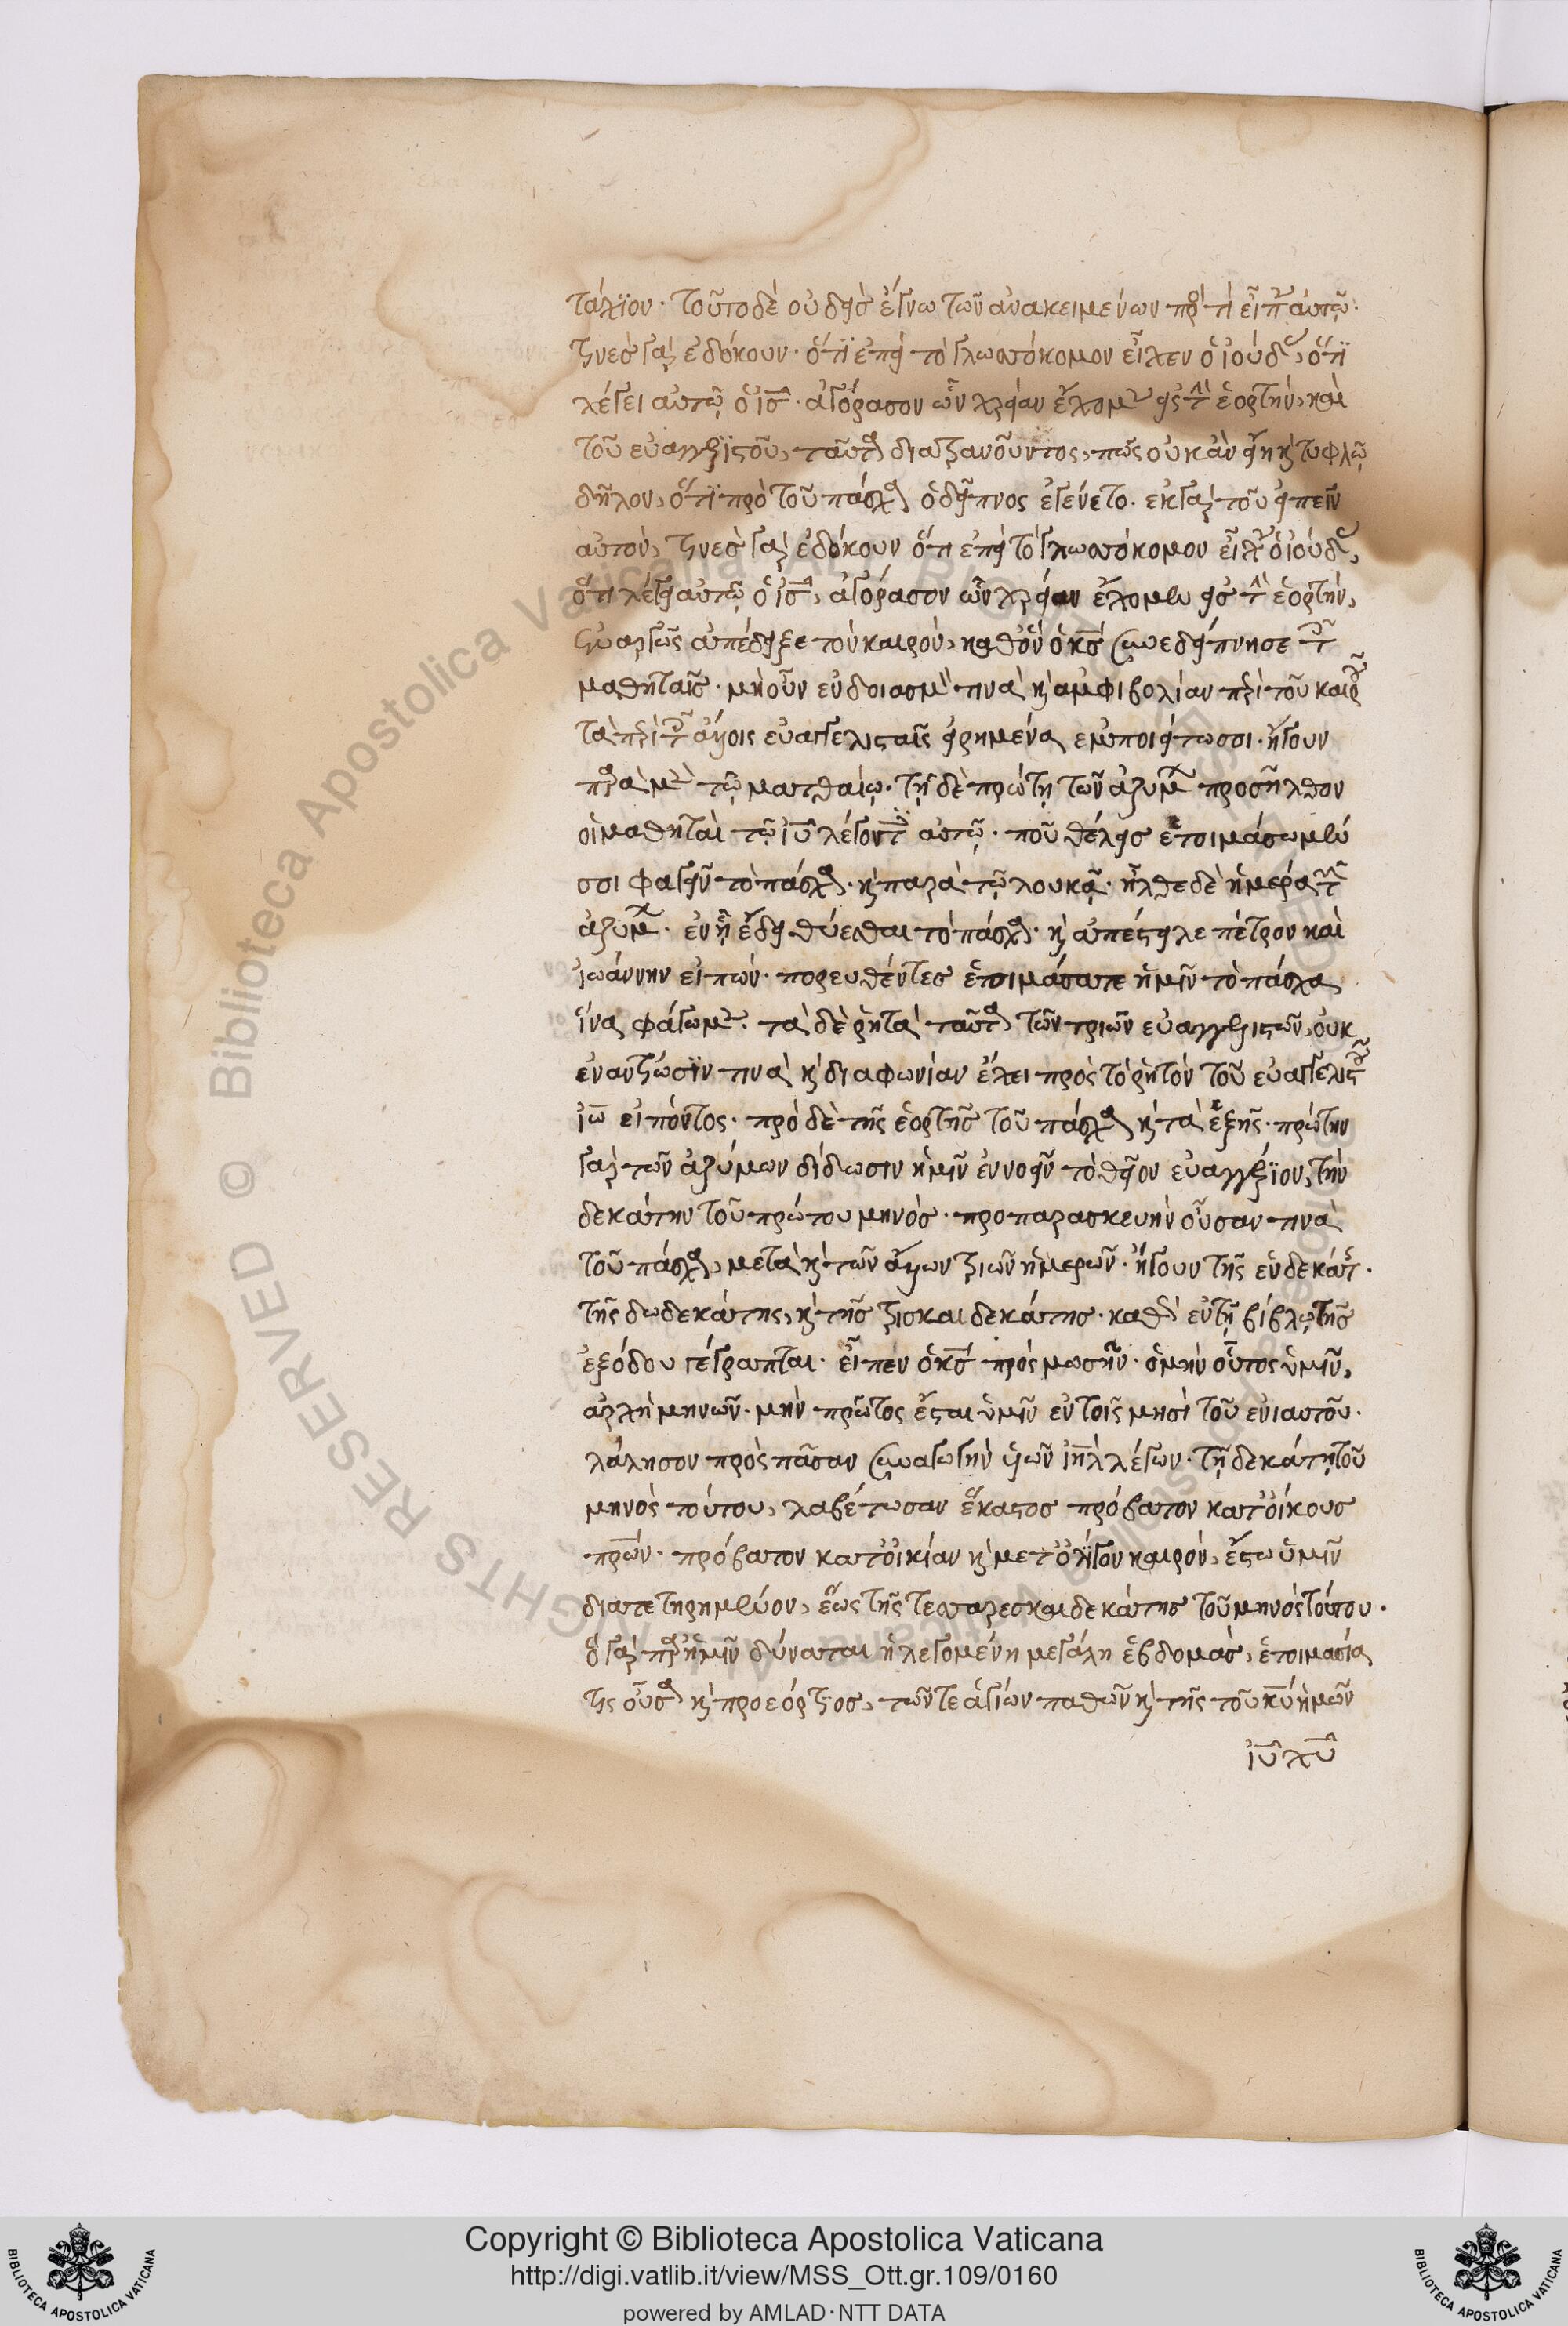 τάχϊον· τοῦτο δὲ οὐδεὶς ἔγνω τῶν ἀνακειμένων πρὸς τί εἶπεν αὐτῷ·
τινὲς γὰρ ἐδόκουν· ὅτϊ ἐπεὶ τὸ γλωσσόκομον εἶχεν ὁ ἰούδας, ὅτϊ
λέγει αὐτῷ ὁ ἰς· ἀγόρασον ὧν χρείαν ἔχομεν εἰς τὴν ἑορτήν, καὶ
τοῦ εὐαγγελϊστοῦ, ταῦτα διατρανοῦντος, πῶς οὐκ ἂν εἴη κ τυφλῷ
δῆλον, ὅτϊ πρὸ τοῦ πάσχα ὁ δεῖπνος ἐγένετο. ἐκ γὰρ τοῦ εἰπεῖν
αὐτόν, τινὲς γὰρ ἐδόκουν ὅτι ἐπεὶ τὸ γλωσσόκομον εἶχεν ὁ ἰούδας,
ὅτι λέγει αὐτῷ ὁ ἰς, ἀγόρασον ὧν χρείαν ἔχομεν εἰς τὴν ἑορτήν,
ἐναργῶς ἀπέδειξε τὸν καιρόν, καθ' ὃν ὁ κς συνεδείπνησε τοῖς
μαθηταῖς· μὴ οὖν ἐνδοιασμόν τινα κ ἀμφιβολίαν περὶ τοῦ καιροῦ
τὰ περὶ τοῖς ἄλλοις εὐαγγελισταῖς εἰρημένα ἐμποιείτωσι· ἤγουν
παρὰ μὲν τῷ ματθαίῳ· τῇ δὲ πρώτῃ τῶν ἀζύμων προσῆλθον
οἱ μαθηταὶ τῷ ἰυ λέγοντες αὐτῷ· ποῦ θέλεις ἑτοιμάσωμέν
σοι φαγεῖν τὸ πάσχα· κ παρὰ τῷ λουκᾷ· ἦλθε δὲ ἡ μέρα τῶν
ἀζύμων· ἐν ᾗ ἔδει θύεσθαι τὸ πάσχα· κ ἀπέστειλε πέτρον καὶ
ἰωάννην εἰπών· πορευθέντες ἑτοιμάσατε ἡμῖν τὸ πάσχα,
ἵνα φάγωμεν· τὰ δὲ ῥητὰ ταῦτα τῶν τριῶν εὐαγγελιστῶν, οὐκ
ἐναντίωσϊν τινὰ κ διαφωνίαν ἔχει πρὸς τὸ ῥητὸν τοῦ εὐαγγελιστοῦ
ἰω εἰπόντος· πρὸ δὲ τῆς ἑορτῆς τοῦ πάσχα κ τὰ ἑξῆς· πρώτην
γὰρ τῶν ἀζύμων δίδωσιν ἡμῖν ἐννοεῖν τὸ θεῖον εὐαγγέλϊον, τὴν
δεκάτην τοῦ πρώτου μηνός· προπαρασκευὴν οὖσαν τινὰ
τοῦ πάσχα, μετὰ κ τῶν ἄλλων τριῶν ἡμερῶν· ἤγουν τῆς ἑνδεκάτης·
τῆς δωδεκάτης, κ τῆς τρισκαιδεκάτης· καθὰ ἐν τῇ βίβλῳ τῆς
ἐξόδου γέγραπται· εἶπεν ὁ κς πρὸς μωσῆν· ὁ μὴν οὗτος ὑμῖν,
ἀρχὴ μηνῶν· μὴν πρῶτος ἔσται ὑμῖν ἐν τοῖς μησὶ τοῦ ἐνιαυτοῦ·
λάλησον πρὸς πᾶσαν συναγωγὴν υἱῶν ἰηλ λέγων· τῇ δεκάτῃ τοῦ
μηνὸς τούτου, λαβέτωσαν ἕκαστος πρόβατον κατ' οἴκους
πρῶν· πρόβατον κατ' οἰκίαν κ μετ' ὀλίγον καιρόν, ἔστω ὑμῖν
διατετηρημένον, ἕως τῆς τεσσαρεσκαιδεκάτης τοῦ μηνὸς τούτου·
ὃ γὰρ παρ' ἡμῖν δύναται ἡ λεγομένη μεγάλη ἑβδομάς, ἑτοιμασία
τις οὖσα κ προεόρτιος, τῶν τε ἁγίων παθῶν κ τῆς τοῦ κυ ἡμῶν
ἰυ χυ
Copyright © Biblioteca Apostolica Vaticana
http://digi.vatlib.it/view/MSS_Ott.gr.109/0160
powered by AMLAD·NTT DATA